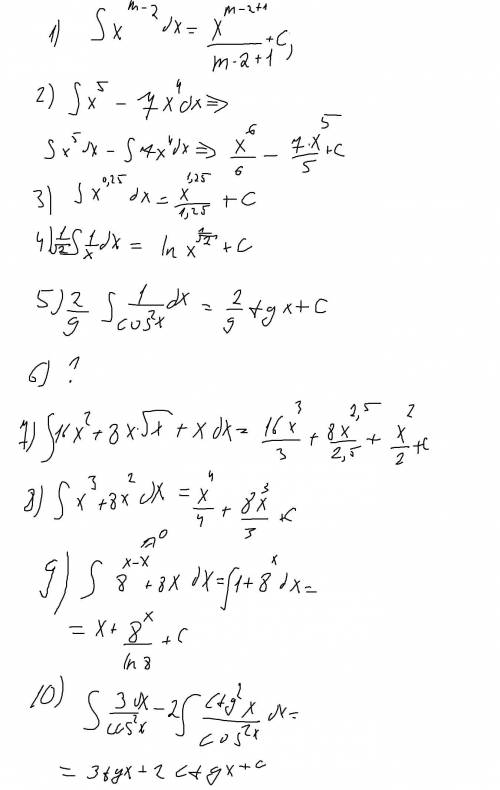 1) ∫ x^{m-2} dx = x^{m-2+1} / m-2+1 + C,
2) ∫ x^5 - 7x^4 dx ⇒
∫ x^5 dx - ∫ 7x^4 dx ⇒ x^6/6 - 7·x^5/5 + C
3) ∫ x^{0,25} dx = x^{1,25}/1,25 + C
4) 1/√2 ∫ 1/x dx = ln x^{1/√2} + C
5) 2/9 ∫ 1/cos²x dx = 2/9 tgx + C
6) ?
7) ∫ 16x² + 8x·√x + x dx = 16x³/3 + 8x^{2,5}/2,5 + x²/2 + C
8) ∫ x³ + 8x² dx = x⁴/4 + 8x³/3 + C
9) ∫ 8^{x-x} + 8x dx = ∫ 1 + 8^x dx =
= x + 8^x/ln 8 + C
10) ∫ 3dx/cos²x - 2 ∫ ctg²x/cos²x dx =
= 3tgx + 2 ctgx + C